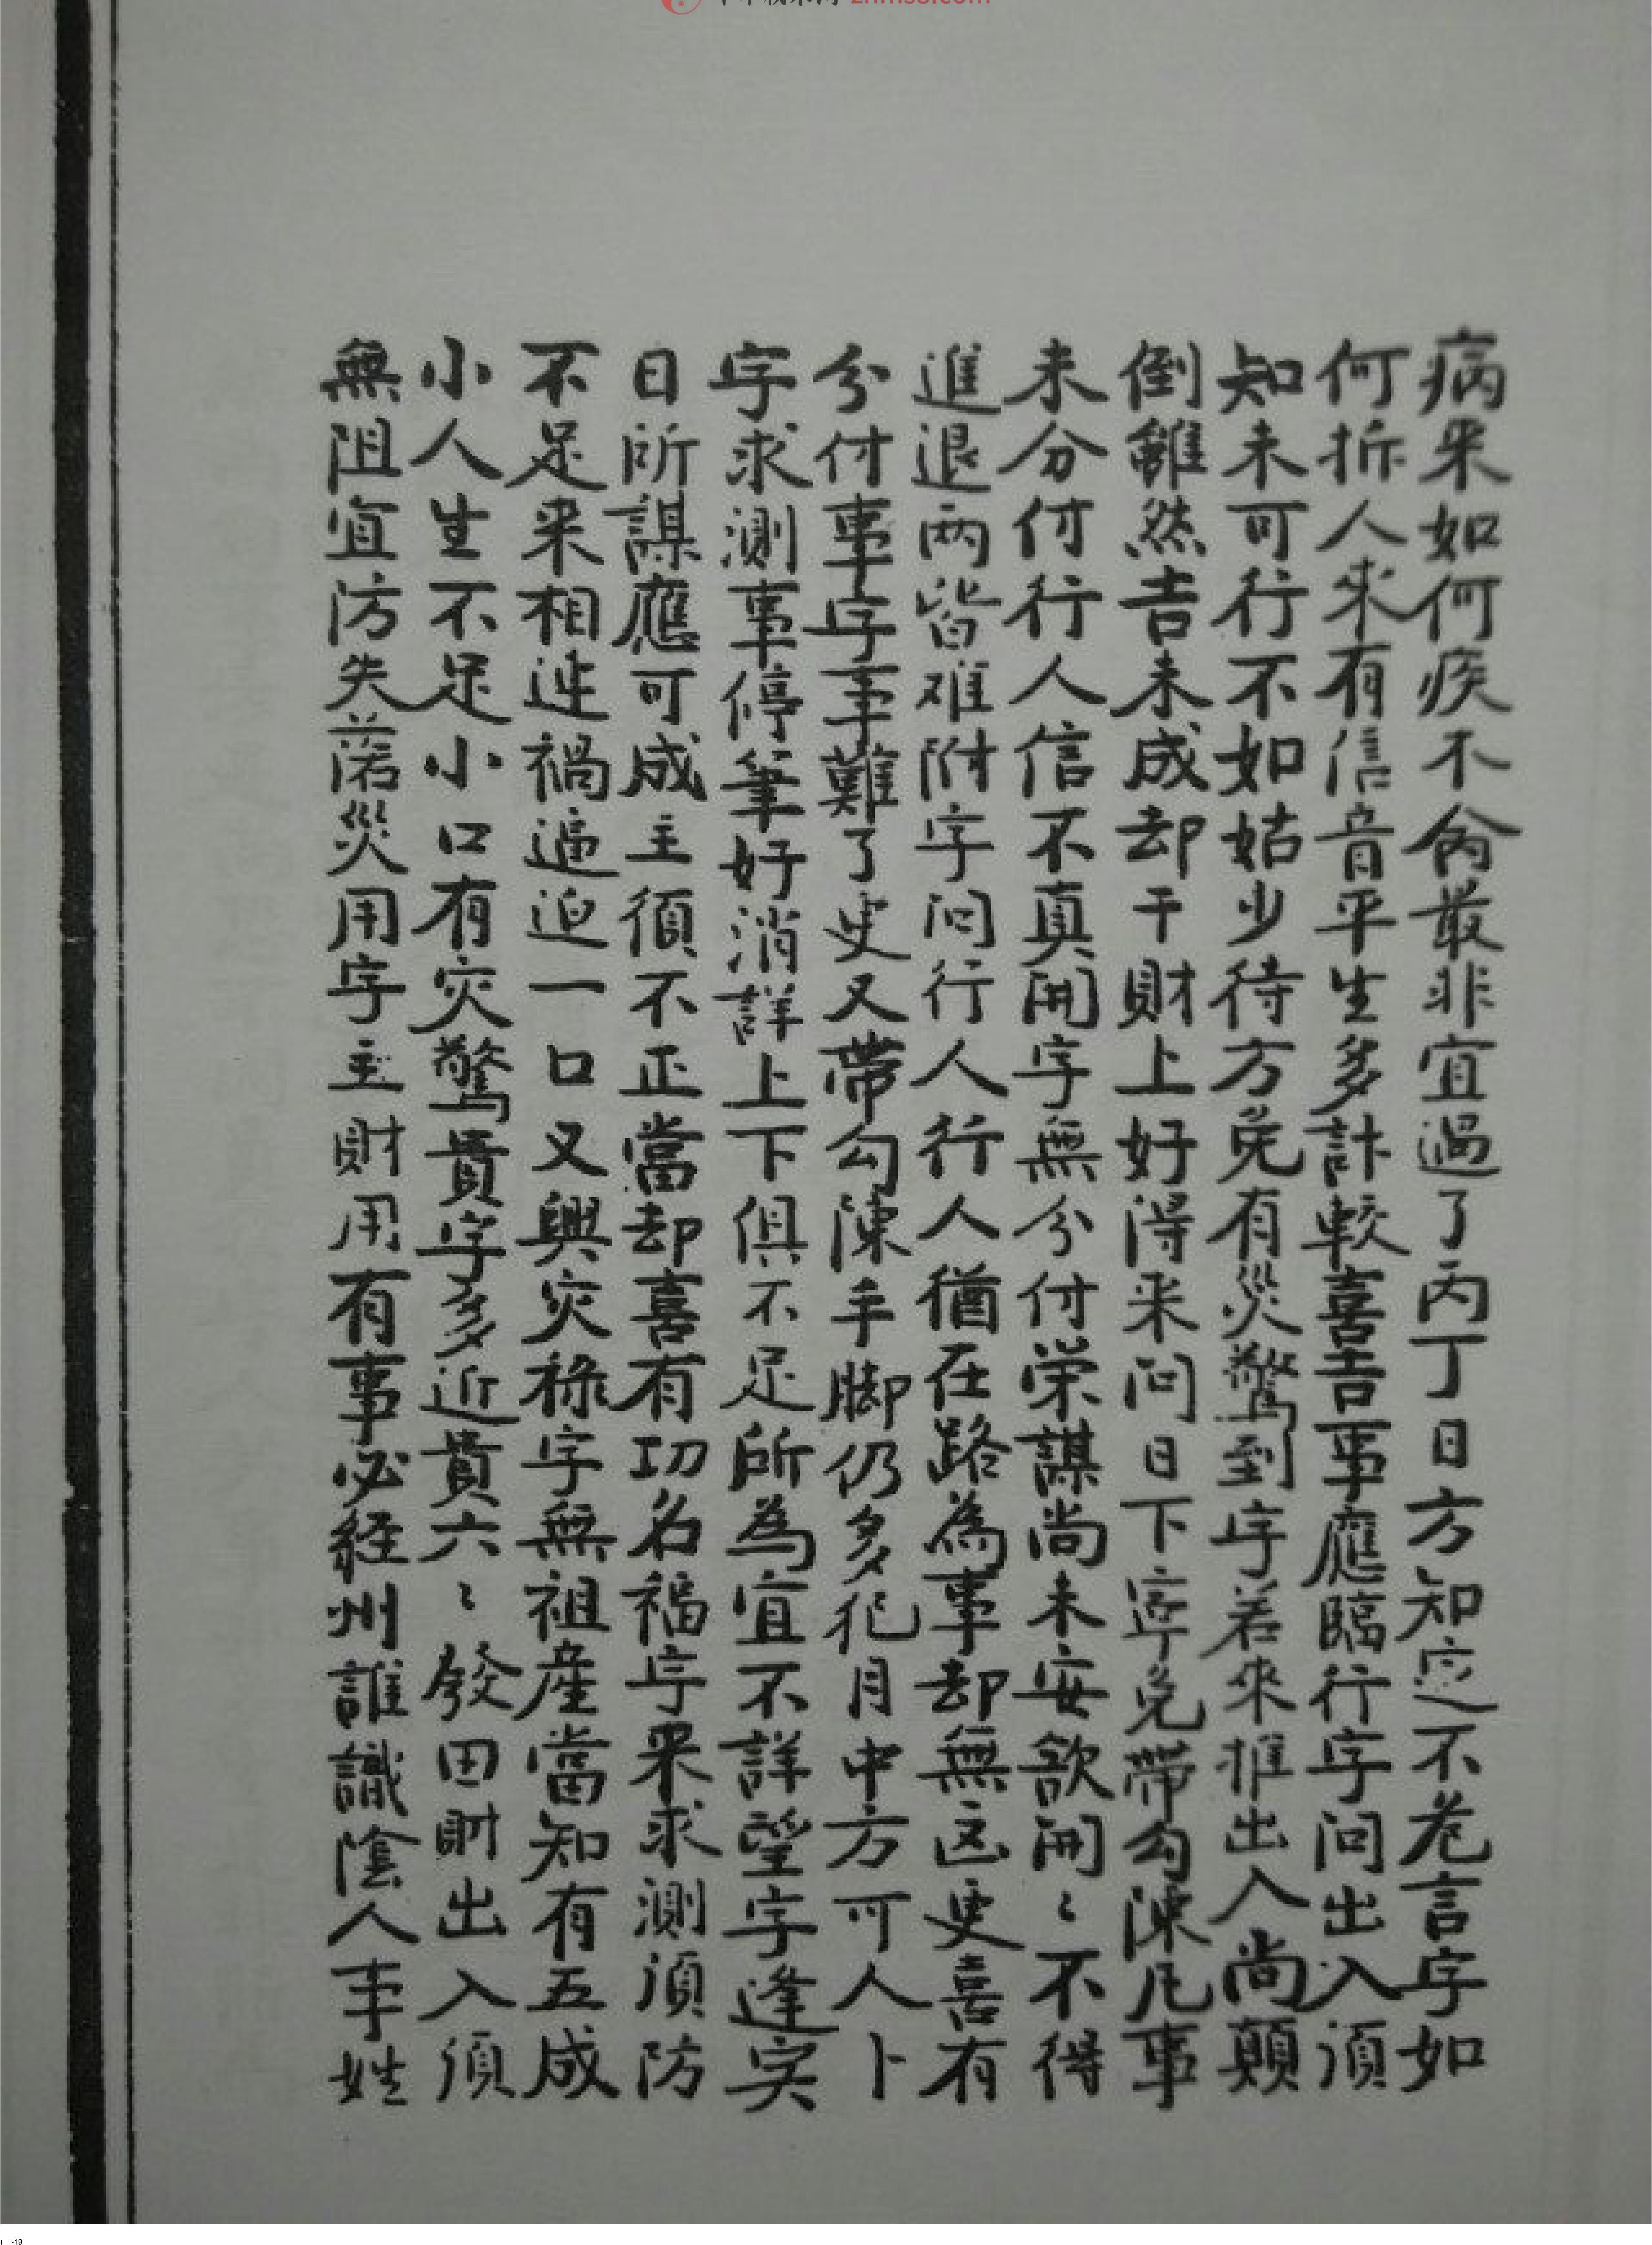 病来如何疾不禽最非宜過了丙丁日方知定不危言字如
何拆人來有信音平生多計較喜吉事應臨行字问出入湏
知未可行不如姑少待方免有災驚到字若來推出入尚顛
倒雖然吉未成却干財上好得来问日下寧免帶勾陳凡事
未分付行人信不真開字無分付荣謀尚未安欲開〻不得
進退两皆难附字问行人行人猶在路為事却無凶更喜有
分付事字事難了吏又帶勾陳手脚仍多犯月中方可人卜
字求测事停筆好消詳上下俱不足所為宜不詳望字逢寅
日所謀應可成主須不正當却喜有功名福字来求测湏防
不足来相迯禍逼迫一口又興灾祿字無祖產當知有五成
小人生不足小口有灾驚貴字多近貴六〻發田財出入湏
無阻宜防失落災用字主財用有事必经州誰識陰人事姓
znmss.com
-19